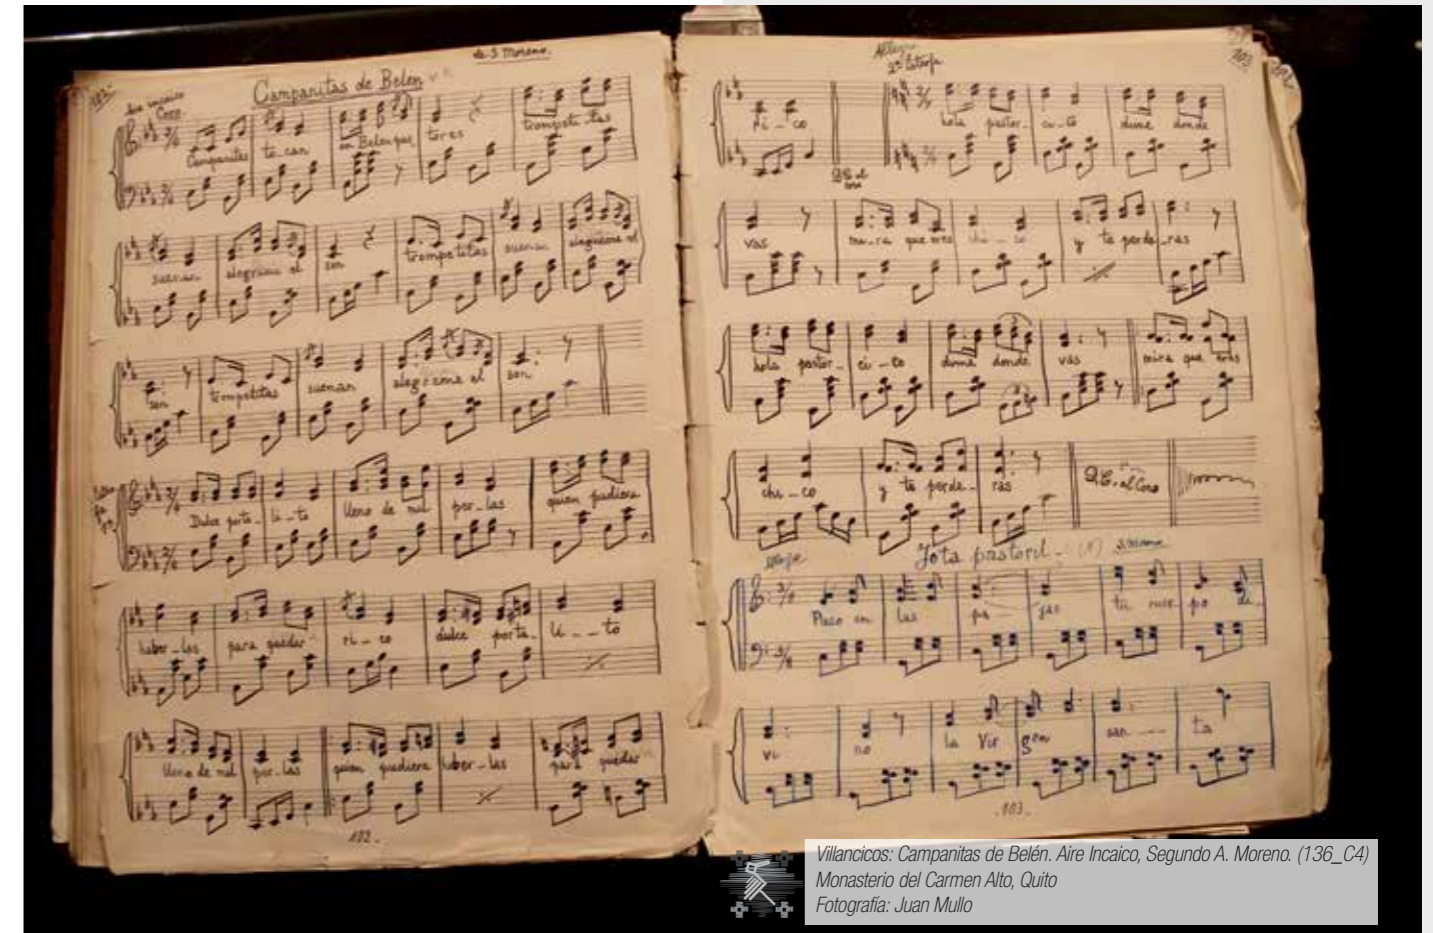 102-
de S Moreno.
Campanitas de Belén
Aire incaico
Coro.
Campanitas to-can en Belen pas tores trompeti-tas
suenan alegrame el son trompetitas suenan alegrame el
son trompetitas suenan alegrame el son
Dulce porta-li-to lleno de mil per-las quien pudiera
haber-las para quedar ri-co dulce porta-li--to
lleno de mil per-las quien pudiera haber-las para quedar
102-
Allegro
2ª Estrofa
103
ri-co D.C. al Coro hola pastor-ci-to dime donde
vas mi-ra que eres chi-co y te perde-ras
hola pastor-ci-to dime donde vas mira que eres
chi-co y te perde-ras D.C. al Coro
Jota pastoril-
Puso en las pa jas tu cuer-po di-
vi no la Vir gen san --- ta
.103.
Villancicos: Campanitas de Belén. Aire Incaico, Segundo A. Moreno. (136_C4)
Monasterio del Carmen Alto, Quito
Fotografía: Juan Mullo